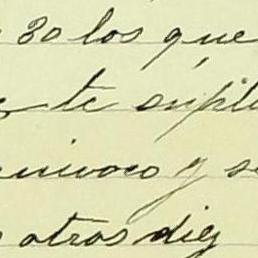 30 los que
te supli
nivoco y se
otros diez